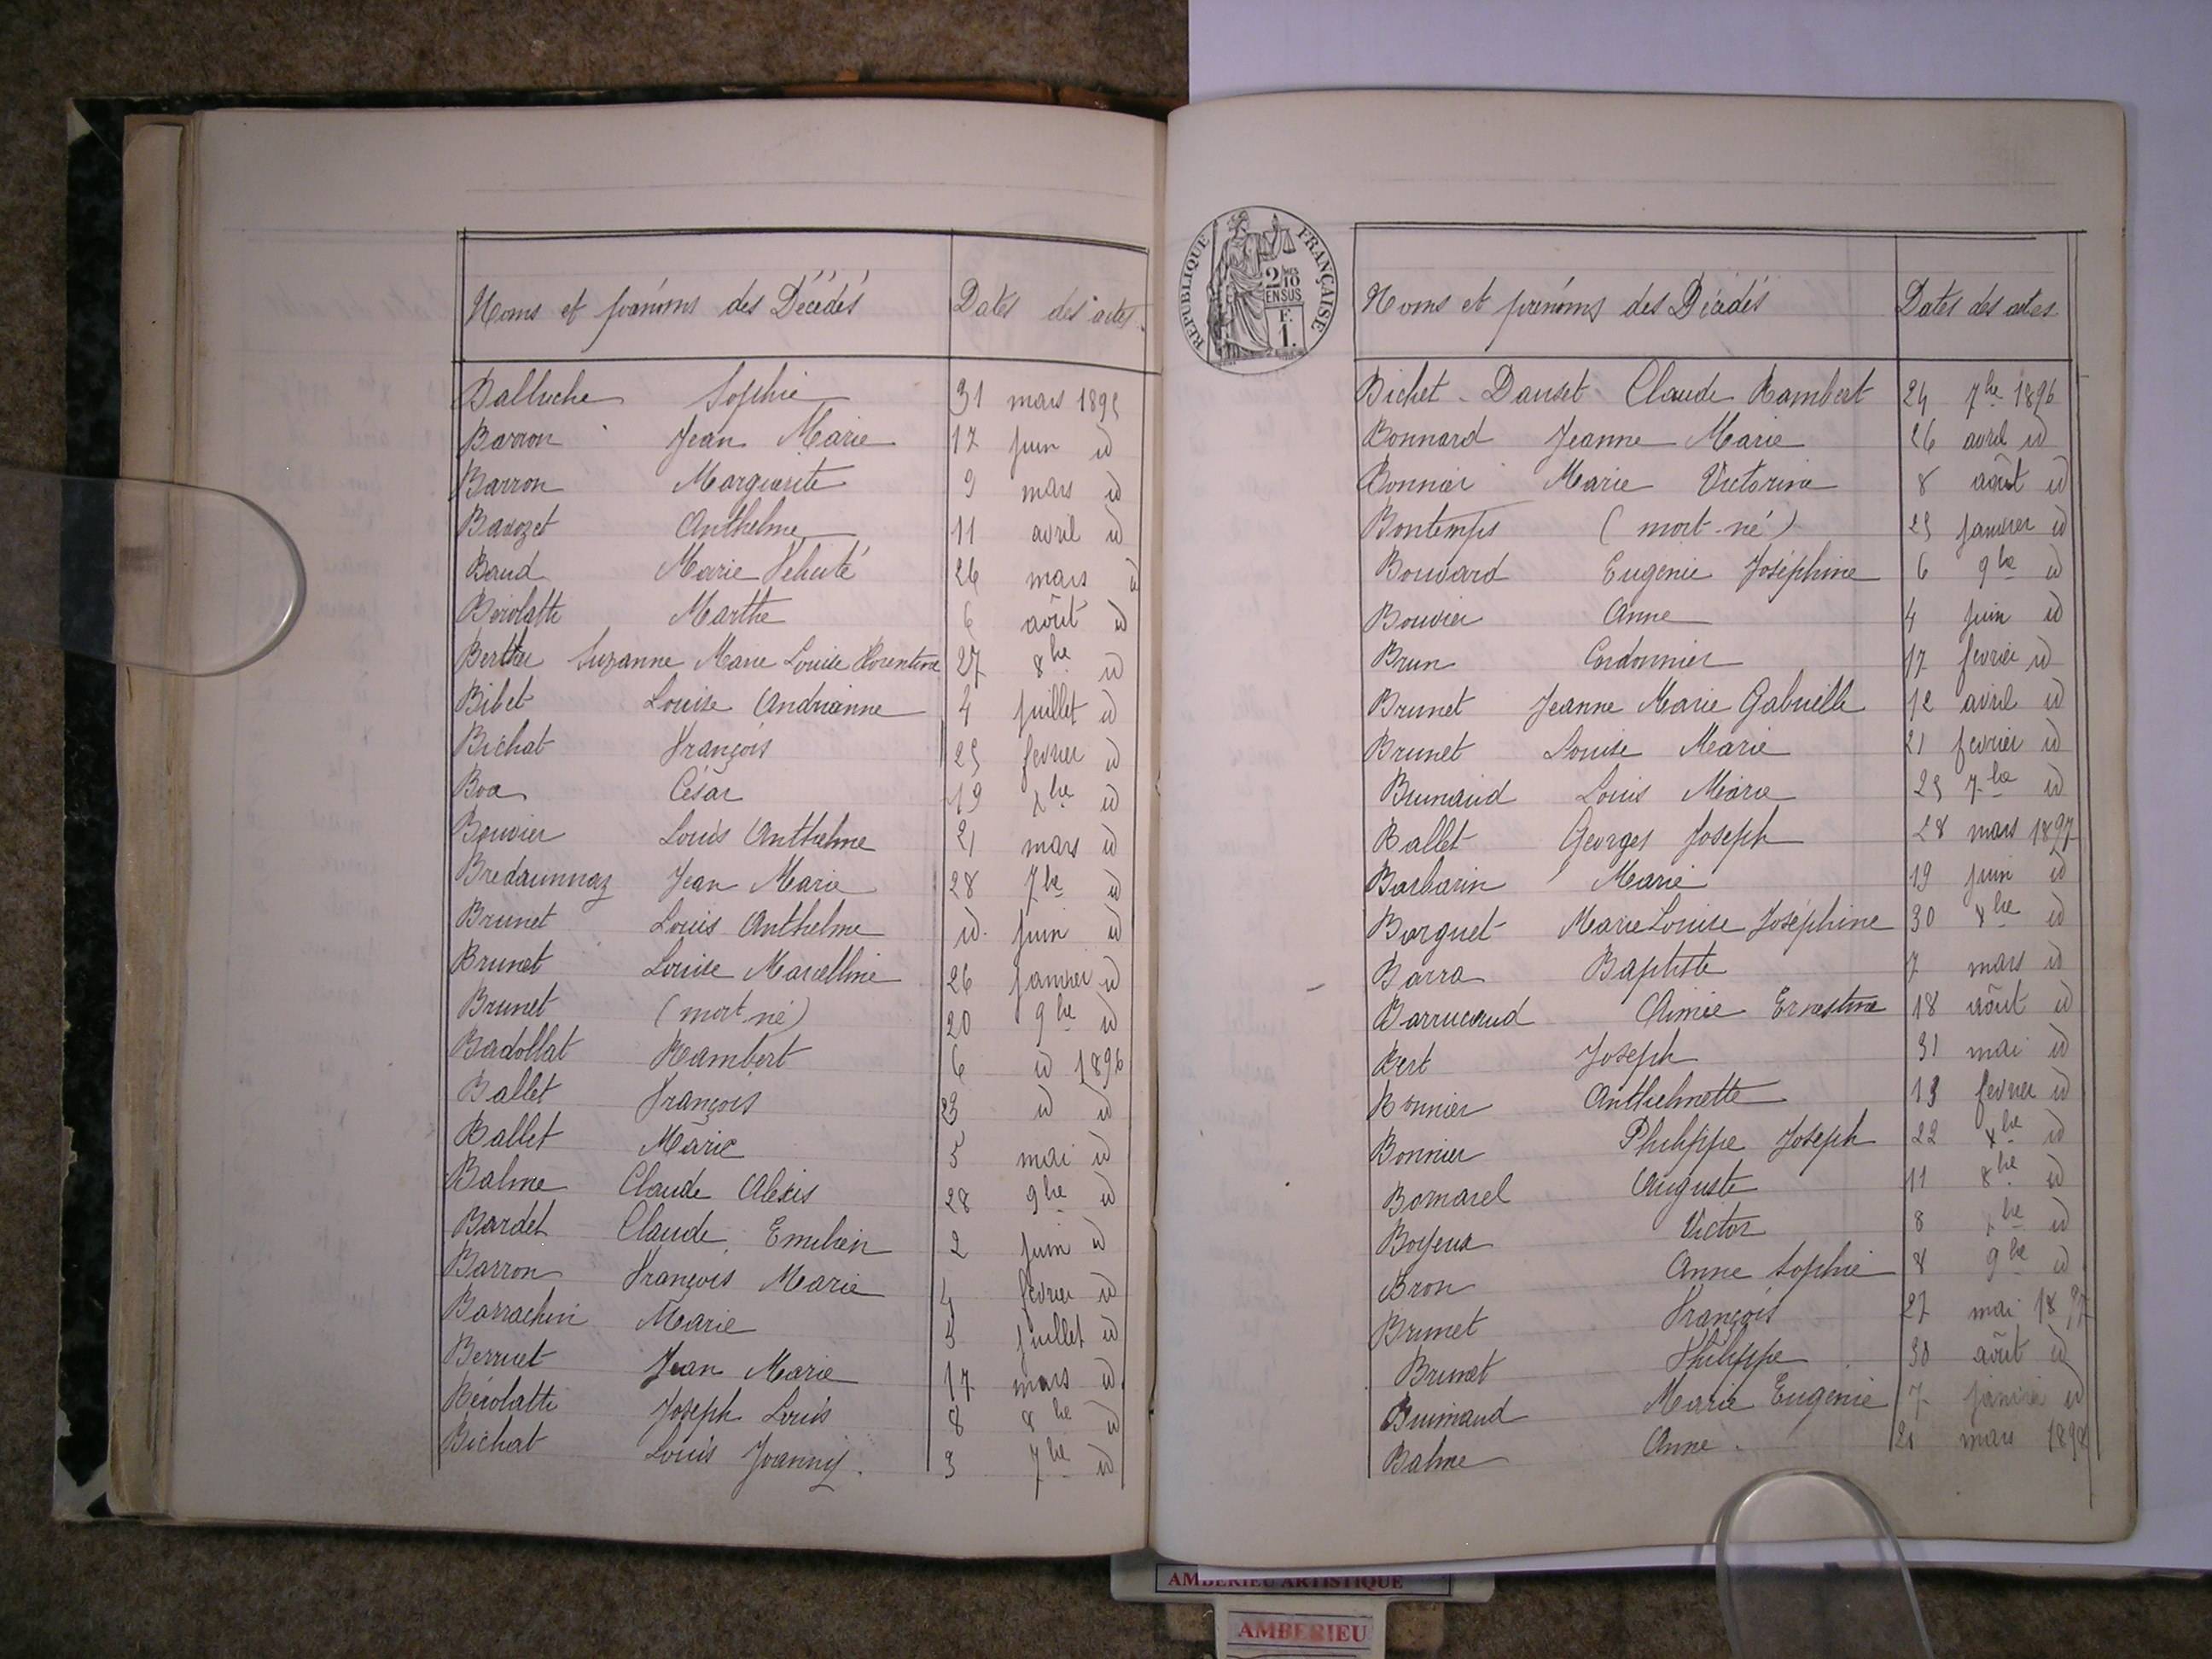 Noms et prénoms des Décédés Dates des actes
Balluche Sophie 31 mars 1895
Barron Jean Marie 17 juin id
Barron Marguerite 9 mars id
Bavozet Anthelme 11 avril id
Baud Marie Félicité 26 mars id
Bérolatti Marthe 6 août id
Berthe Suzanne Marie Louise Florentine 27 8bre id
Bibet Louise Andrianne 4 juillet id
Bichat François 25 fevrier id
Boa César 19 xbre id
Bouvier Louis Anthelme 21 mars id
Bredaunnaz Jean Marie 28 7bre id
Brunet Louis Anthelme id. juin id
Brunet Louise Marcelline 26 janvier id
Brunet (mort-né) 20 9bre id
Badollat Rambert 6 id 1896
Ballet François 23 id id
Ballet Marie 5 mai id
Balme Claude Alexis 28 9bre id
Bardet Claude Emilien 2 juin id
Barron François Marie 4 fevrier id
Barrachin Marie 5 juillet id
Berruet Jean Marie 17 mars id
Bérolatti Joseph Louis 8 8bre id
Bichat Louis Joanny. 3 7bre id
REPUBLIQUE FRANÇAISE
2/10
EN SUS
F.
1.
Noms et prénoms des Décédés Dates des actes
Bichet-Danset Claude Rambert 24 7bre 1896
Bonnard Jeanne Marie 26 avril id
Bonnier Marie Victorine 8 août id
Bontemps (mort-né) 25 janvier id
Bouvard Eugenie Joséphine 6 9bre id
Bouvier Anne 4 juin id
Brun Cordonnier 17 fevrier id
Brunet Jeanne Marie Gabrielle 12 avril id
Brunet Louise Marie 21 fevrier id
Brunaud Louis Marie 25 7bre id
Ballet Georges Joseph 28 mars 1897
Barbarin Marie 19 juin id
Barguet Marie Louise Joséphine 30 xbre id
Barra Baptiste 7 mars id
Barrucaud Aimée Ernestine 18 août id
Bert Joseph 31 mai id
Bonnier Anthelmette 13 fevrier id
Bonnier Philippe Joseph 22 xbre id
Bornarel Auguste 11 8bre id
Boyeux Victor 8 xbre id
Bron Anne Sophie 8 9bre id
Brunet François 27 mai 1897
Brunet Philippe 30 août id
Brunaud Marie Eugenie 7 janvier id
Balme Anne. 21 mars 1898
AMBERIEU ARTISTIQUE
AMBERIEU